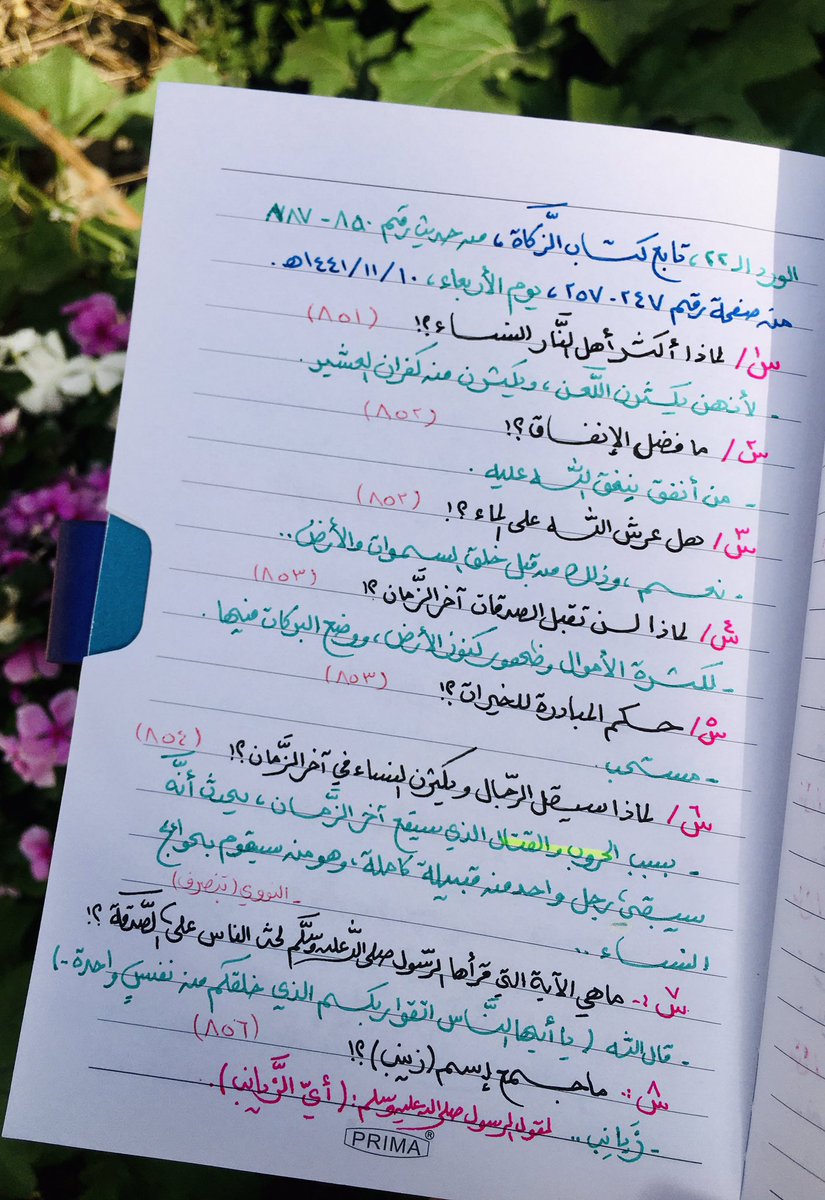 الورد الـ ٢٢، تابع كتاب الزَّكاة، من حديث رقم ٨٥٠ - ٨٨٧
من صفحة رقم ٢٤٧ - ٢٥٧، يوم الأربعاء، ١٤٤١/١١/١٠هـ.
س١/ لماذا أكثر أهل النَّار النساء؟! (٨٥١)
- لأنهن يكثرن اللَّعن، ويكثرن من كفران العشير.
س٢/ ما فضل الإنفاق؟! (٨٥٢)
- من أنفق ينفق الله عليه.
س٣/ هل عرش الله على الماء؟! (٨٥٢)
- نعم، وذلك من قبل خلق السموات والأرض..
س٤/ لماذا لن تقبل الصدقات آخر الزَّمان؟! (٨٥٣)
- لكثرة الأموال وظهور كنوز الأرض، ووضع البركات فيها.
س٥/ حكم المبادرة للخيرات؟! (٨٥٣)
- مستحب.
س٦/ لماذا سيقل الرِّجال ويكثرن النساء في آخر الزَّمان؟! (٨٥٤)
- بسبب الحروب والقتال الذي سيقع آخر الزَّمان، بحيث أنَّه
سيبقى رجل واحد من قبيلة كاملة، وهو من سيقوم بحوائج
النساء .. - النووي (بتصرف)
س٧:- ماهي الآية التي قرأها الرَّسول صلى الله عليه وسلَّم لحث الناس على الصَّدقة؟!
- قال الله ( يا أيها النَّاس اتقوا ربكم الذي خلقكم من نفسٍ واحدة -)
س٨:- ما جمع إسم (زينب)؟! (٨٥٦)
- زَيانِب.. لقول الرسول صلى الله عليه وسلم: (أيّ الزَّيانِب)..
PRIMA®